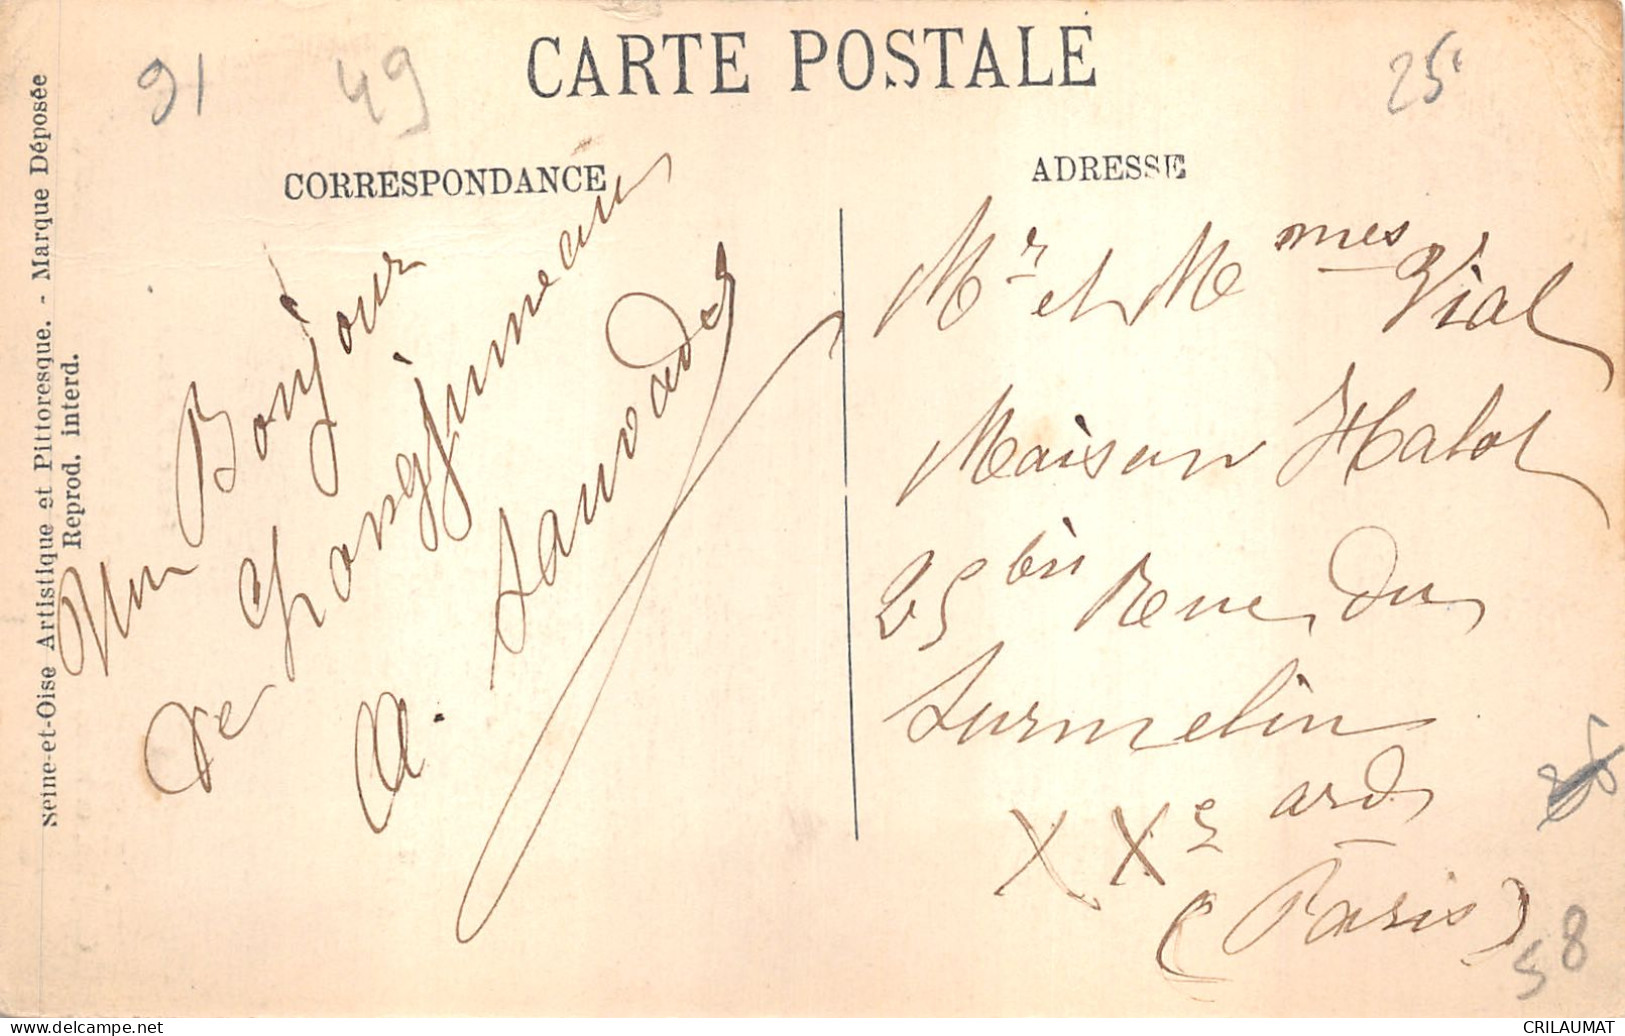 CARTE POSTALE
91
49
25
CORRESPONDANCE
ADRESSE
Seine-et-Oise Artistique et Pittoresque. - Marque Déposée
Reprod. interd.
Un Bonjour
de Longjumeau
A. Sauvade
Mr et Mmes Vial
Maison Halot
25 bis Rue du
Surmelin
XXe ard
(Paris)
58
CRILAUMAT